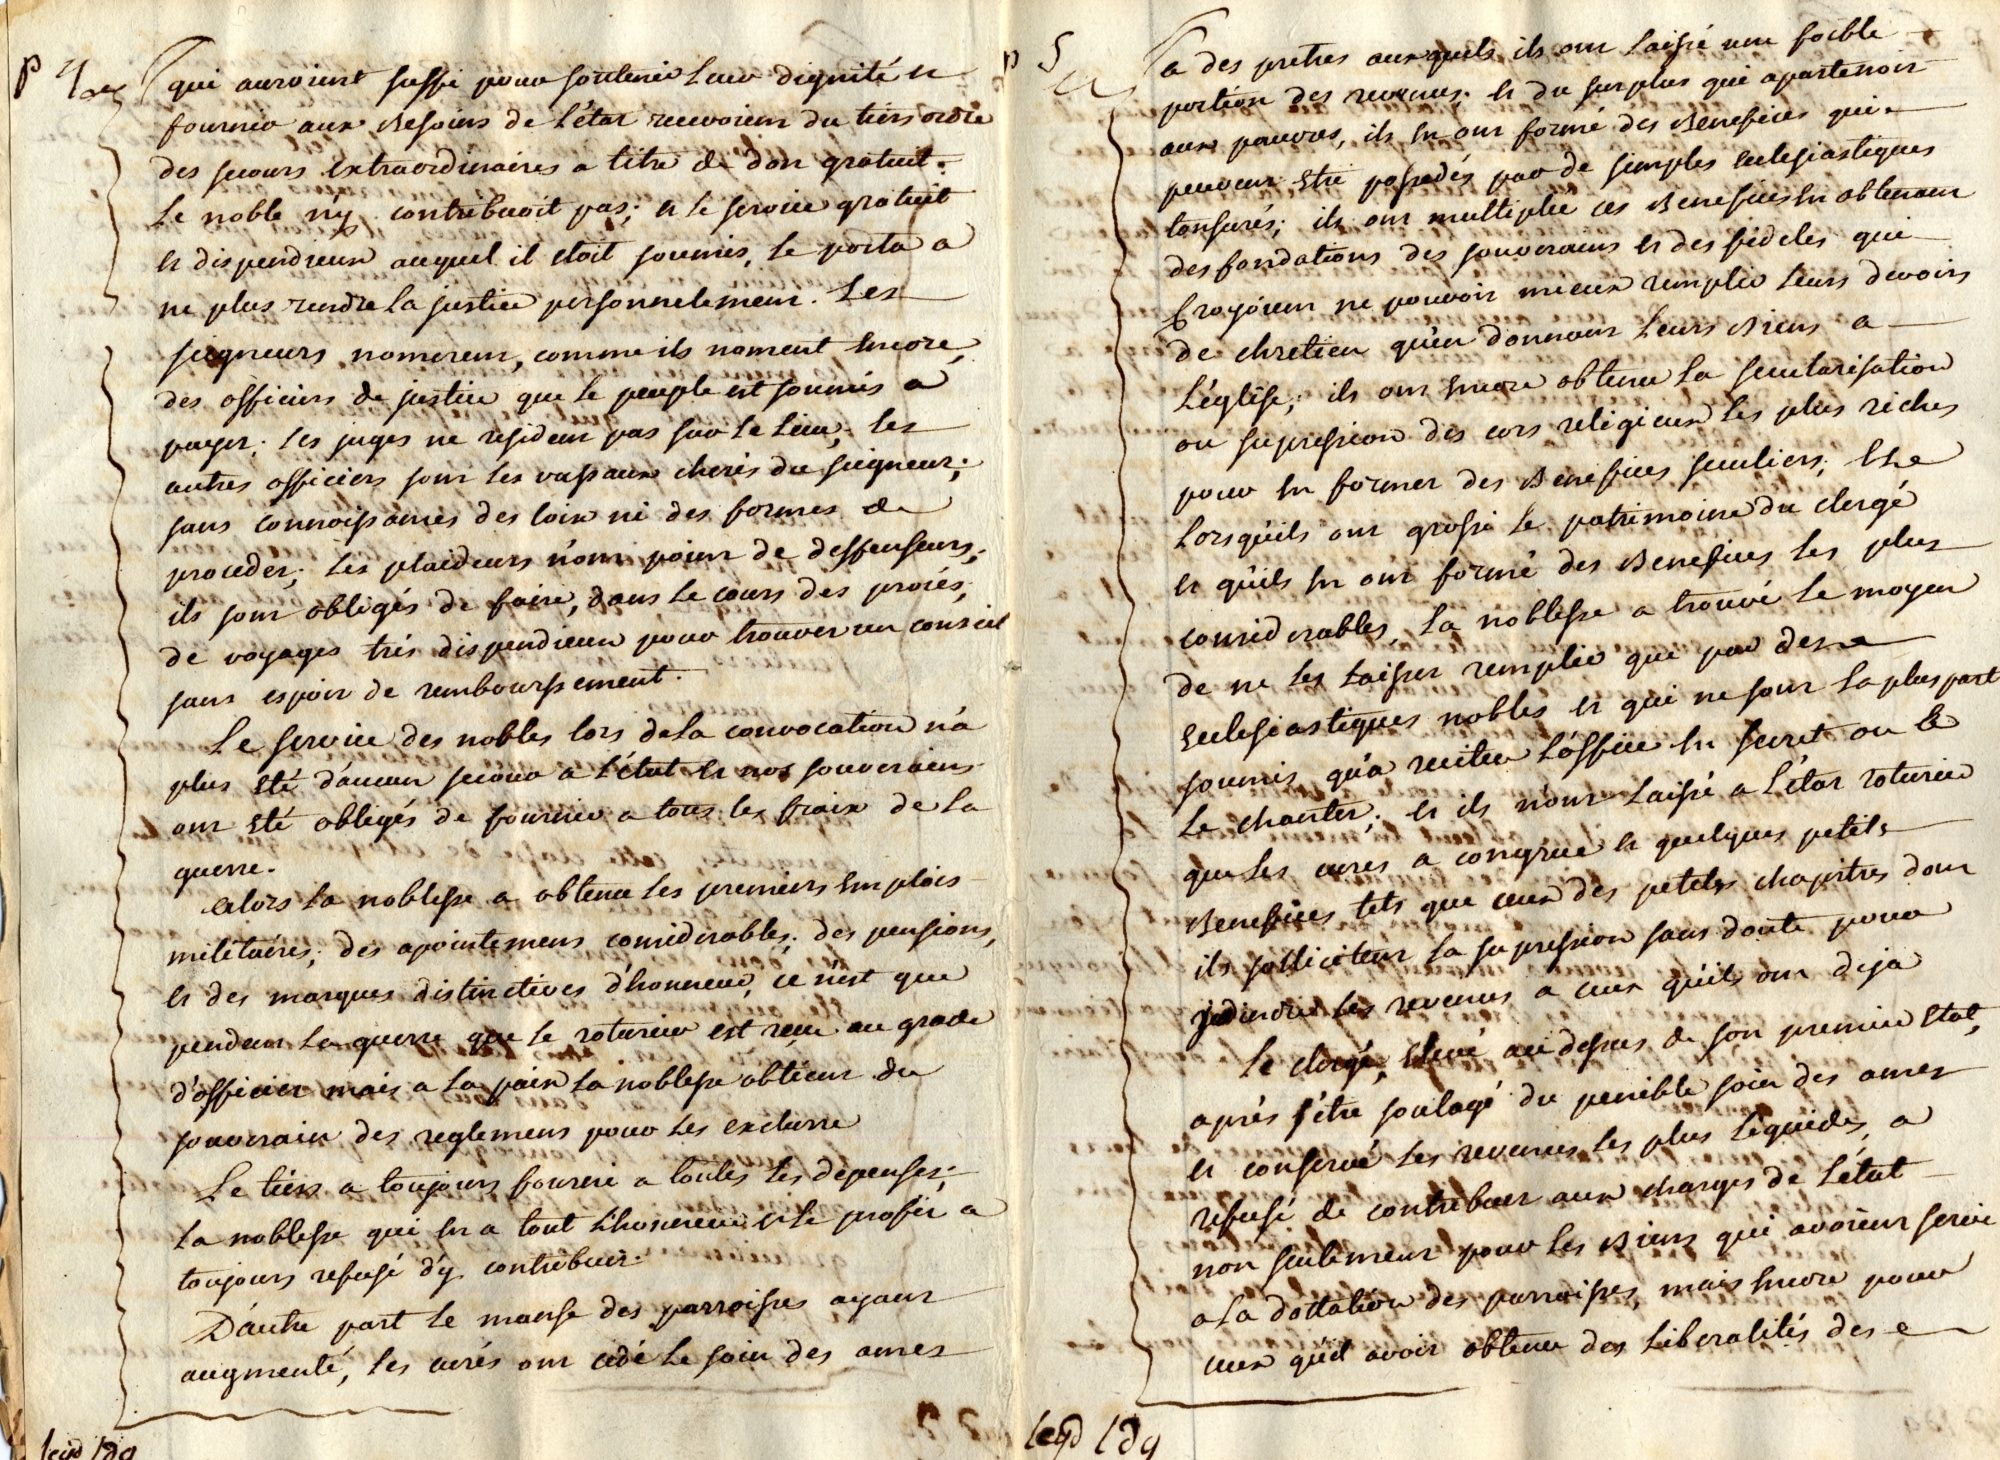 p 4
qui auroient suffi pour soutenir leur dignité et
fournir aux besoins de l'état recevoient du tiers ordre
des secours extraordinaires a titre de don gratuit.
Le noble n'y contribuoit pas; et le service gratuit
et dispendieux auquel il etoit soumis, le porta a
ne plus rendre la justice personnelement. Les
seigneurs nomerent, comme ils noment encore,
des officiers de justice que le peuple est soumis a
payer; les juges ne resident pas sur le lieu; les
autres officiers sont les vassaux cheris du seigneur;
sans connoissances des loix ni des formes de
proceder; les plaideurs n'ont point de deffenseurs;
ils sont obligés de faire, dans le cours des procés,
de voyages trés dispendieux pour trouver un conseil
sans espoir de remboursement.
Le service des nobles lors de la convocation n'a
plus eté d'aucun secour a l'état et nos souverains
ont eté obligés de fournir a tous les fraix de la
guerre.
alors la noblesse a obtenu les premiers emplois
militaires; des apointemens considerables; des pensions,
et des marques distinctives d'honneur, ce n'est que
pendant la guerre que le roturier est reçu au grade
d'officier mais a la paix la noblesse obtient du
souverain des reglemens pour les exclurre
Le tiers a toujours fourni a toutes les depenses;
la noblesse qui en a tout l'honneur et le profit a
toujours refusé d'y contribuer.
D'autre part le manse des parroisses ayant
augmenté, les curés ont cedé le soin des ames
p 5
a des pretres auxquels ils ont laissé une foible
portion des revenus; et du surplus qui apartenoit
aux pauvres, ils en ont formé des benefices qui
peuvent etre possedés par de simples eclesiastiques
tonsurés; ils ont multiplié ces benefices en obtenant
des fondations des souverains et des fideles qui
croyoient ne pouvoir mieux remplir leurs devoirs
de chretien qu'en donnant leurs biens a
l'église; ils ont encore obtenu la secularisation
ou supression des cors religieux les plus riches
pour en former des benefices seculiers; et
lorsqu'ils ont grossi le patrimoine du clergé
et qu'ils en ont formé des benefices les plus
considerables, la noblesse a trouvé le moyen
de ne les laisser remplir que par des
eclesiastiques nobles et qui ne sont la plus part
soumis qu'a reciter l'office en secret ou a
le chanter; et ils n'ont laissé a l'état roturier
que les cures a congrue et quelques petits
benefices tels que ceux des petits chapitres dont
ils sollicitent la supression sans doute pour
joindre les revenus a ceux qu'ils ont deja
Le clergé, elevé au dessus de son premier etat,
aprés s'etre soulagé du penible soin des ames
et conservé les revenus les plus liquides, a
refusé de contribuer aux charges de l'état
non seulement pour les biens qui avoient servi
a la dottation des parroisses, mais encore pour
ceux qu'il avoit obtenu des liberalités des